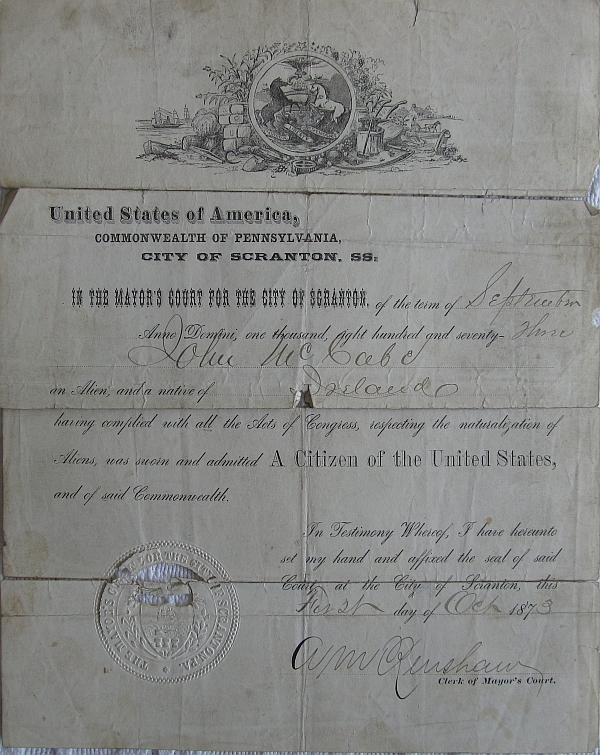 United States of America,
COMMONWEALTH OF PENNSYLVANIA,
CITY OF SCRANTON, SS:
IN THE MAYOR'S COURT FOR THE CITY OF SCRANTON, of the term of September
Anno Domini, one thousand, eight hundred and seventy-three
John McCabe
an Alien, and a native of Ireland
having complied with all the Acts of Congress, respecting the naturalization of
Aliens, was sworn and admitted A Citizen of the United States,
and of said Commonwealth.
In Testimony Whereof, I have hereunto
set my hand and affixed the seal of said
Court, at the City of Scranton, this
First day of Oct 1873
Clerk of Mayor's Court.